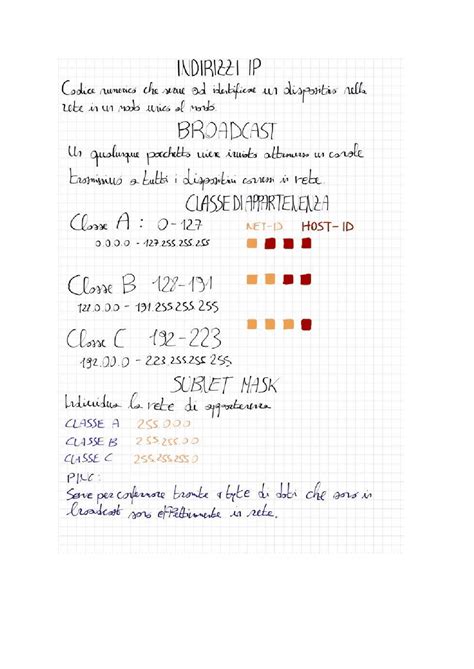 INDIRIZZI IP
Codice numerico che serve ad identificare un dispositivo nella
rete in un modo unico al mondo.
BROADCAST
Un qualunque pacchetto viene inviato attraverso un canale
trasmissivo a tutti i dispositivi connessi in rete.
CLASSE DI APPARTENENZA
Classe A : 0-127 NET-ID HOST-ID
0.0.0.0 - 127.255.255.255
Classe B 128-191
128.0.0.0 - 191.255.255.255
Classe C 192-223
192.0.0.0 - 223.255.255.255
SUBNET MASK
Individua la rete di appartenenza
CLASSE A 255.0.0.0
CLASSE B 255.255.0.0
CLASSE C 255.255.255.0
Serve per confermare tramite 4 byte di dati che sono in
broadcast sono effettivamente in rete.